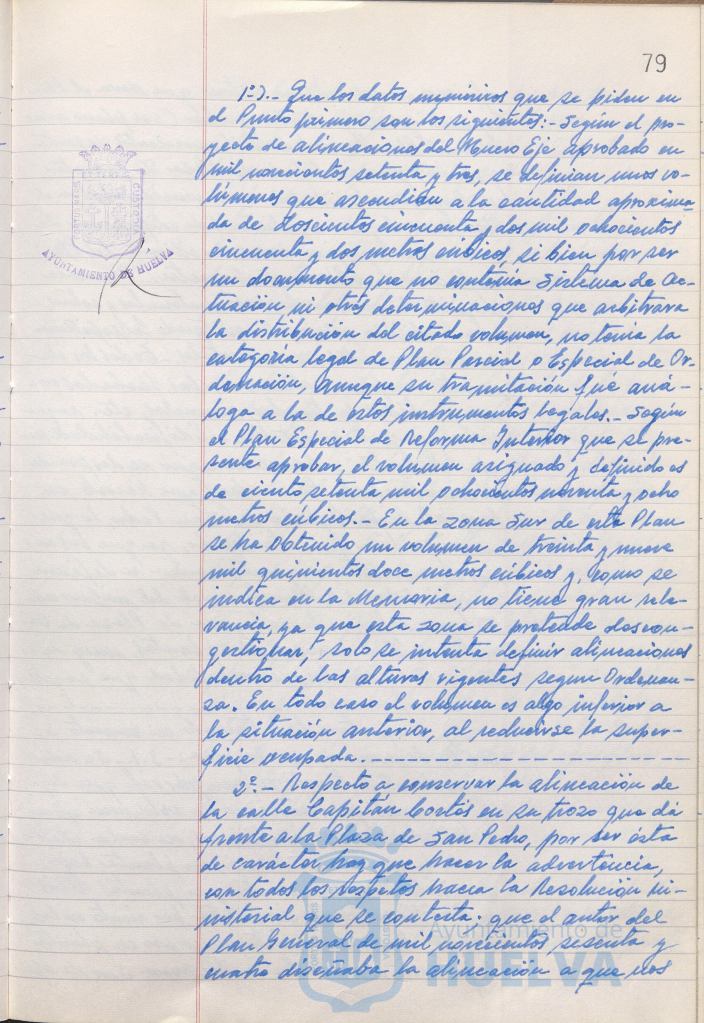 79
1º).- Que los datos numéricos que se piden en
el Punto primero son los siguientes:- Según el pro-
yecto de alineaciones del Nuevo Eje aprobado en
mil novecientos setenta y tres, se definían unos vo-
lúmenes que ascendían a la cantidad aproxima-
da de doscientos cincuenta y dos mil ochocientos
cincuenta y dos metros cúbicos, si bien por ser
un documento que no contenía Sistema de Ac-
tuación, ni otras determinaciones que arbitrara
la distribución del citado volumen, no tenía la
categoría legal de Plan Parcial o Especial de Or-
denación, aunque su tramitación fue aná-
loga a la de éstos instrumentos legales.- Según
el Plan Especial de Reforma Interior que se pre-
sente aprobar, el volumen asignado y definido es
de ciento setenta mil ochocientos noventa y ocho
metros cúbicos.- En la zona Sur de este Plan
se ha obtenido un volumen de treinta y nueve
mil quinientos doce metros cúbicos y, como se
indica en la Memoria, no tiene gran rele-
vancia, ya que esta zona se pretende descon-
gestionar, solo se intenta definir alineaciones
dentro de las alturas vigentes segun Ordenan-
za. En todo caso el volumen es algo inferior a
la situación anterior, al reducirse la super-
ficie ocupada.
2º.- Respecto a conservar la alineación de
la calle Capitán Cortés en su trozo que dá
frente a la Plaza de San Pedro, por ser ésta
de carácter hay que hacer la advertencia,
con todos los respetos hacia la Resolución mi-
nisterial que se contesta: que el autor del
Plan General de mil novecientos sesenta y
cuatro diseñaba la alineación a que nos
AYUNTAMIENTO DE HUELVA
Ayuntamiento de
HUELVA